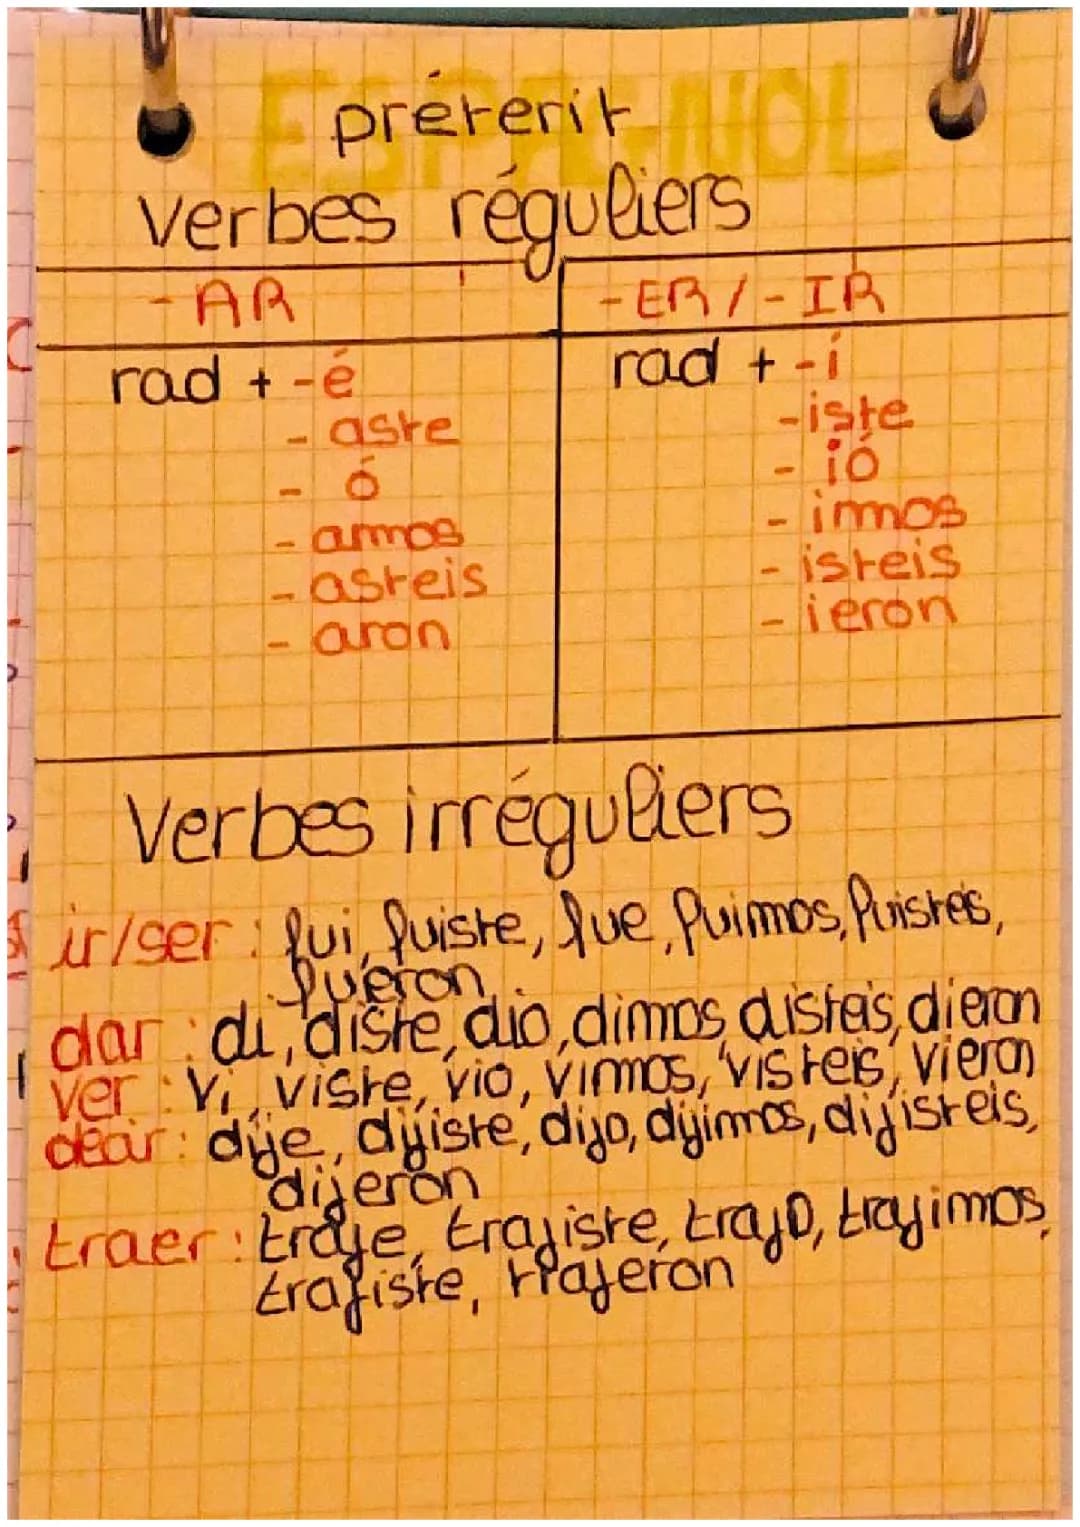 ESPAGNOL
préterit
Verbes réguliers
-AR
-ER / -IR
rad + -é
- aste
- ó
- amos
- asteis
- aron
rad + -í
-iste
- ió
- imos
- isteis
- ieron
Verbes irréguliers
ir/ser : fui, fuiste, fue, fuimos, fuisteis,
fueron
dar : di, diste, dio, dimos, disteis, dieron
ver : vi, viste, vio, vimos, visteis, vieron
decir : dije, dijiste, dijo, dijimos, dijisteis,
dijeron
traer : traje, trajiste, trajo, trajimos,
trajiste, trajeron